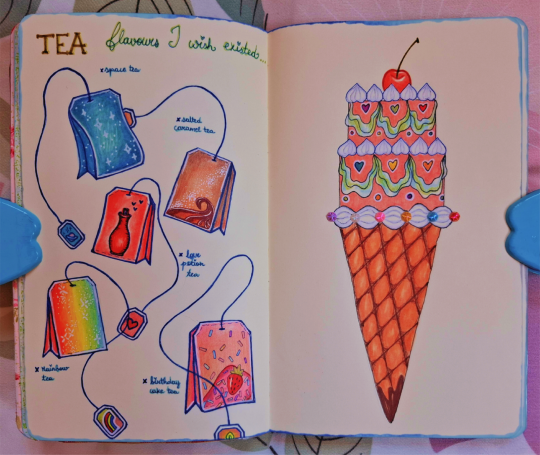 TEA flavours I wish existed...
× space tea
× salted
caramel tea
× love
potion
tea
× rainbow
tea
× birthday
cake tea